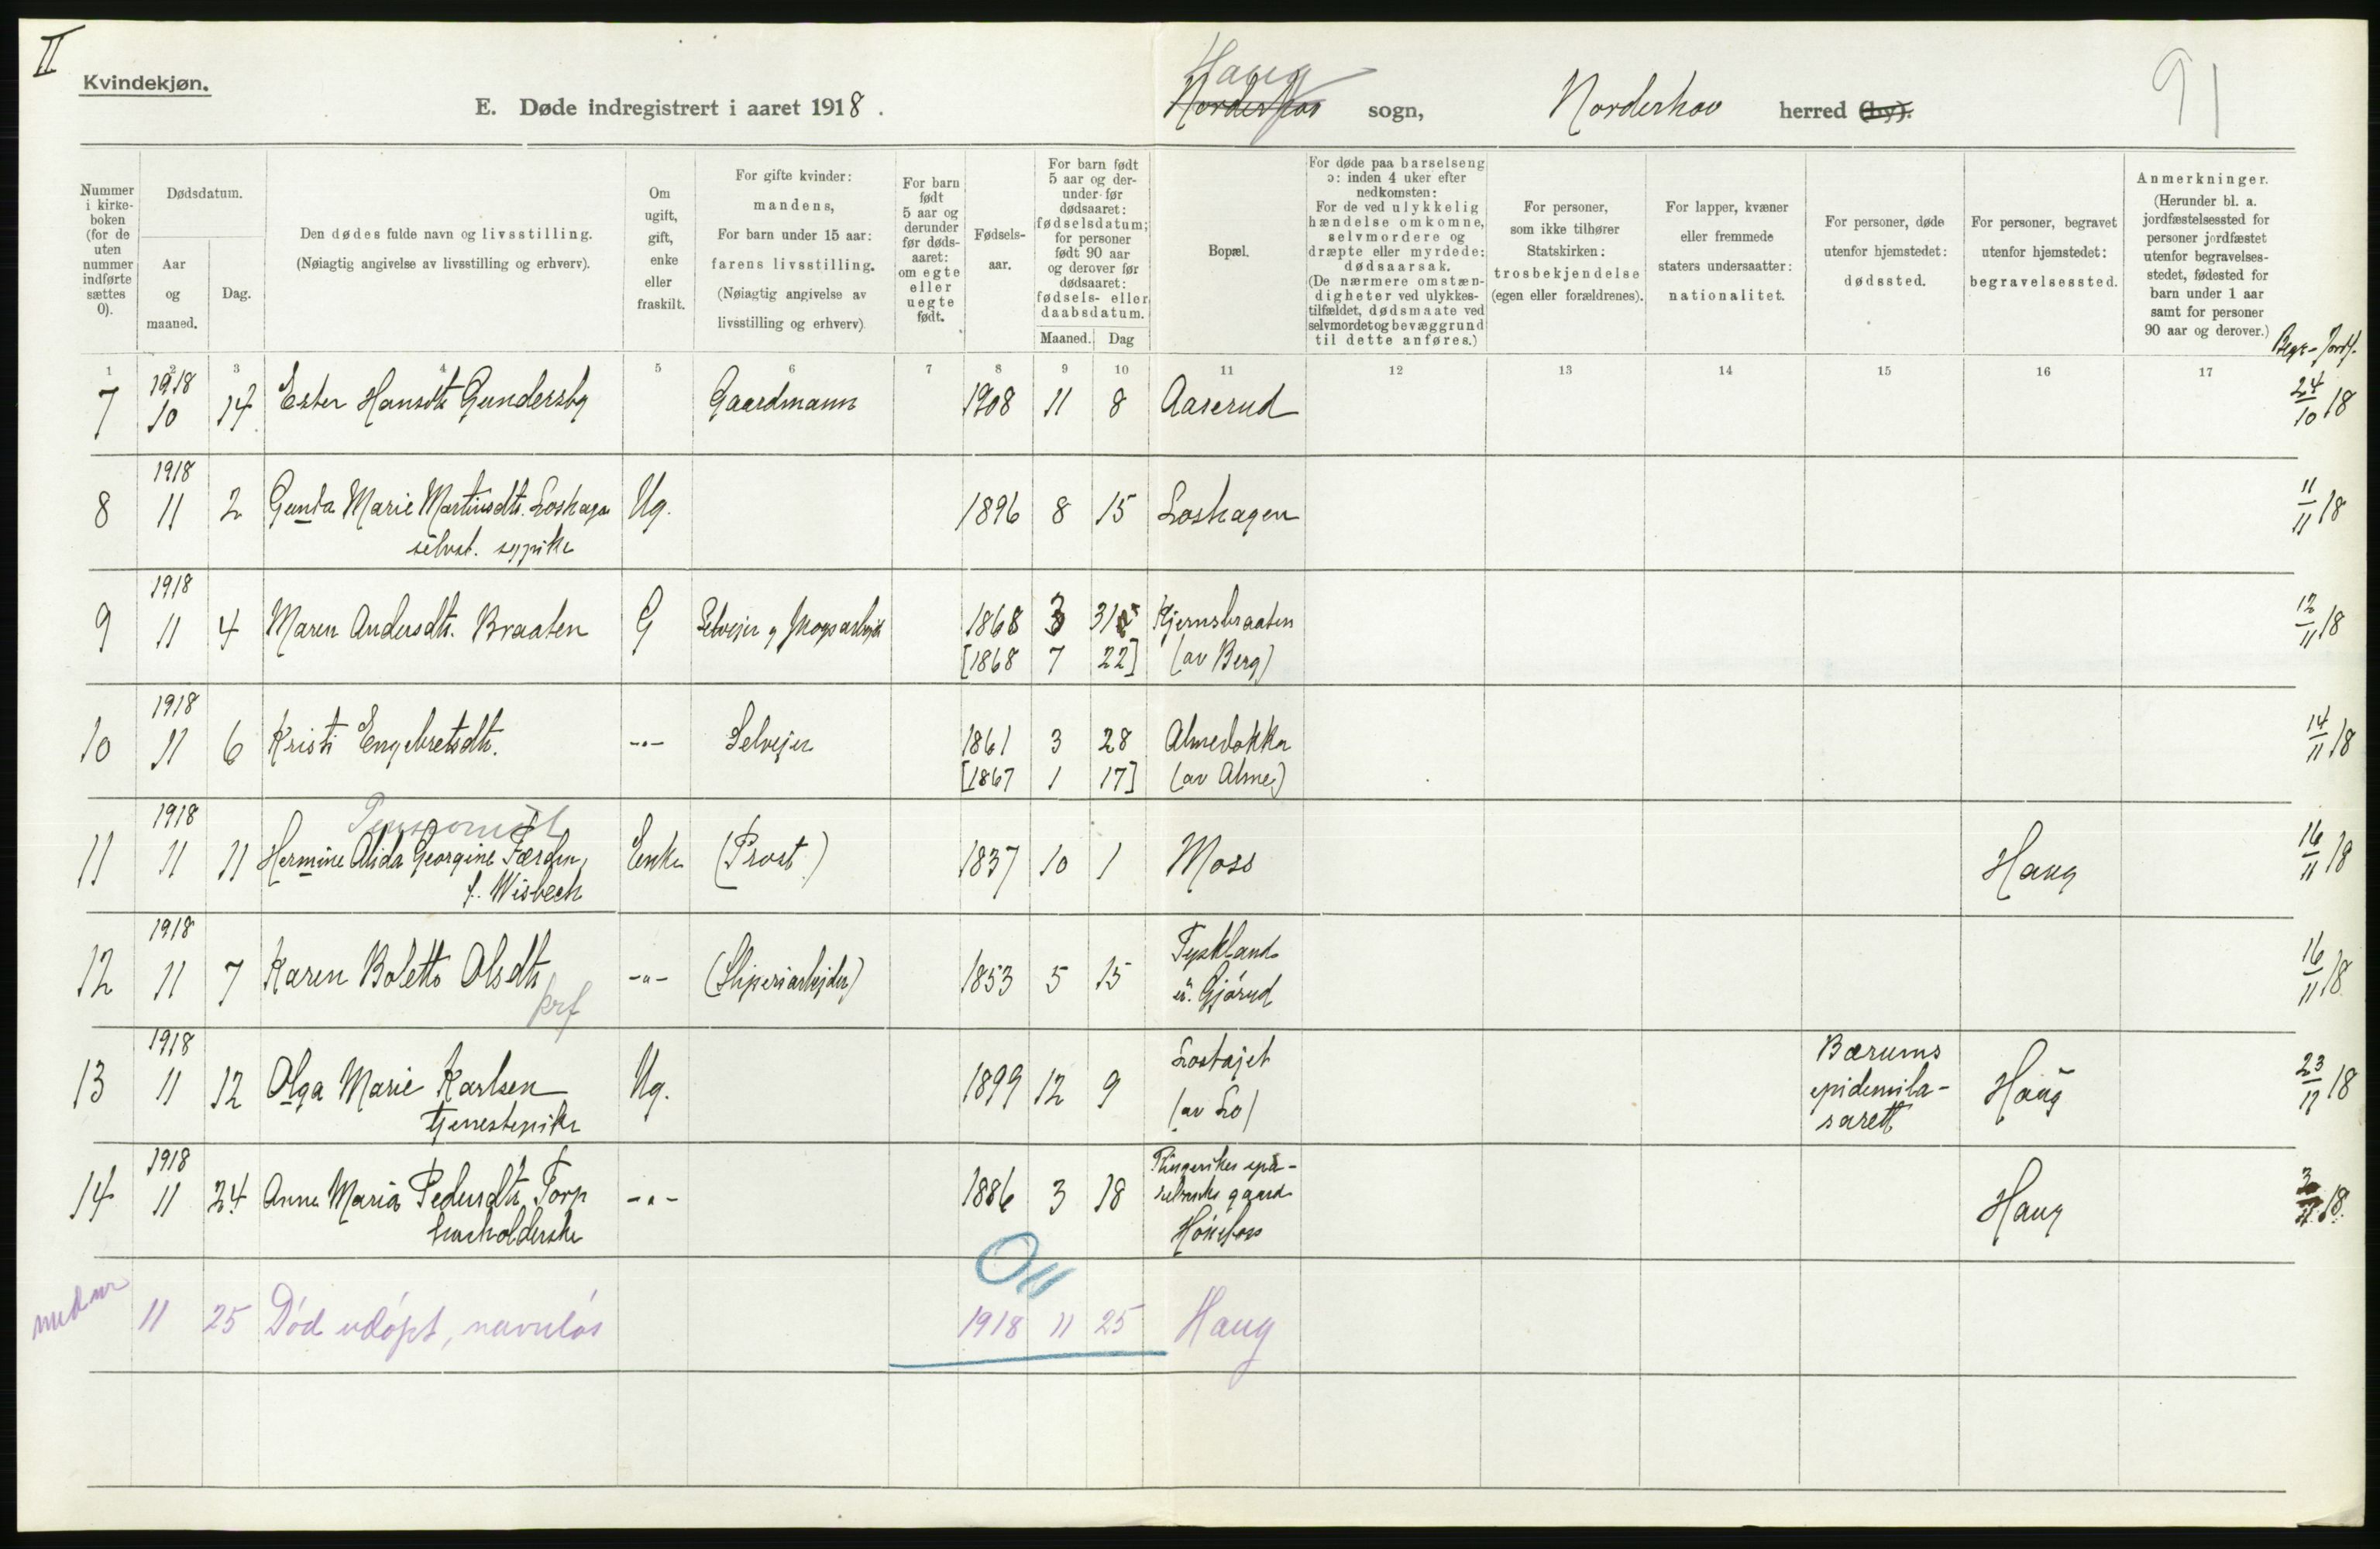 II
Kvindekjøn.
E. Døde indregistrert i aaret 1918.
Haug
Norderhov sogn, Norderhov herred (by).
91
Nummer i kirkeboken (for de uten nummer indførte sættes 0).
Dødsdatum.
Aar og maaned.
Dag.
Den dødes fulde navn og livsstilling.
(Nøiagtig angivelse av livsstilling og erhverv).
Om ugift, gift, enke eller fraskilt.
For gifte kvinder: mandens,
For barn under 15 aar: farens livsstilling.
(Nøiagtig angivelse av livsstilling og erhverv)
For barn født 5 aar og derunder før dødsaaret: om egte eller uegte født.
Fødselsaar.
For barn født 5 aar og derunder før dødsaaret: fødselsdatum; for personer født 90 aar og derover før dødsaaret: fødsels- eller daabsdatum.
Maaned. Dag
Bopæl.
For døde paa barselseng ɔ: inden 4 uker efter nedkomsten:
For de ved ulykkelig hændelse omkomne, selvmordere og dræpte eller myrdede: dødsaarsak.
(De nærmere omstændigheter ved ulykkestilfældet, dødsmaate ved selvmordet og bevæggrund til dette anføres.)
For personer, som ikke tilhører Statskirken: trosbekjendelse (egen eller forældrenes).
For lapper, kvæner eller fremmede staters undersaatter: nationalitet.
For personer, døde utenfor hjemstedet: dødssted.
For personer, begravet utenfor hjemstedet: begravelsessted.
Anmerkninger.
(Herunder bl. a. jordfæstelsessted for personer jordfæstet utenfor begravelsesstedet, fødested for barn under 1 aar samt for personer 90 aar og derover.)
Begr- Jordf.
1 2 3 4 5 6 7 8 9 10 11 12 13 14 15 16 17
1918
7 10 14 Ester Hansdtr Gundersby Gaardmann 1908 11 8 Aaserud 24/10 18
1918
8 11 2 Gunda Marie Martinsdtr. Loshagen Ug. 1896 8 15 Loshagen 11/11 18
selvst. sypike
1918
9 11 4 Maren Andersdtr. Braaten G Selveier og skogsarbejd 1868 3 31 Kjernsbraaten 12/11 18
[1868 7 22] (av Berg)
1918
10 11 6 Kristi Engebretsdtr. -"- Selvejer 1861 3 28 Almedokka 14/11 18
[1867 1 17] (av Alme)
1918 Pensionist
11 11 11 Hermine Alida Georgine Færden, Enke (Prost) 1837 10 1 Moss Haug 16/11 18
f. Wisbech
1918
12 11 7 Karen Bolette Olsdtr -"- (Sliperiarbejder) 1853 5 15 Tyskland 16/11 18
u. Gjörud
1918
13 11 12 Olga Marie Karlsen Ug. 1899 12 9 Lostøjet Bærums epidemila- Haug 23/11 18
tjenestepike (av Lo) sarett
1918
14 11 24 Anna Maria Pedersdtr. Torp -"- 1886 3 18 Ringerikes spa- Haug 3/12 18
husholderske rebanks gaard
Hönefoss
11 25 Död udöpt, navnlös 1918 11 25 Haug